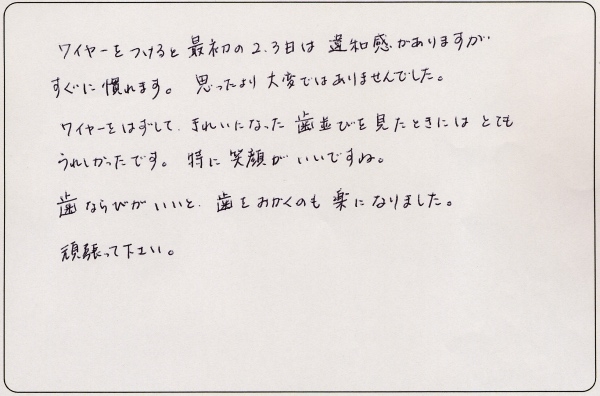 ワイヤーをつけると最初の2.3日は違和感がありますが
すぐに慣れます。思ったより大変ではありませんでした。
ワイヤーをはずして、きれいになった歯並びを見たときにはとても
うれしかったです。特に笑顔がいいですね。
歯ならびがいいと、歯をみがくのも楽になりました。
頑張って下さい。